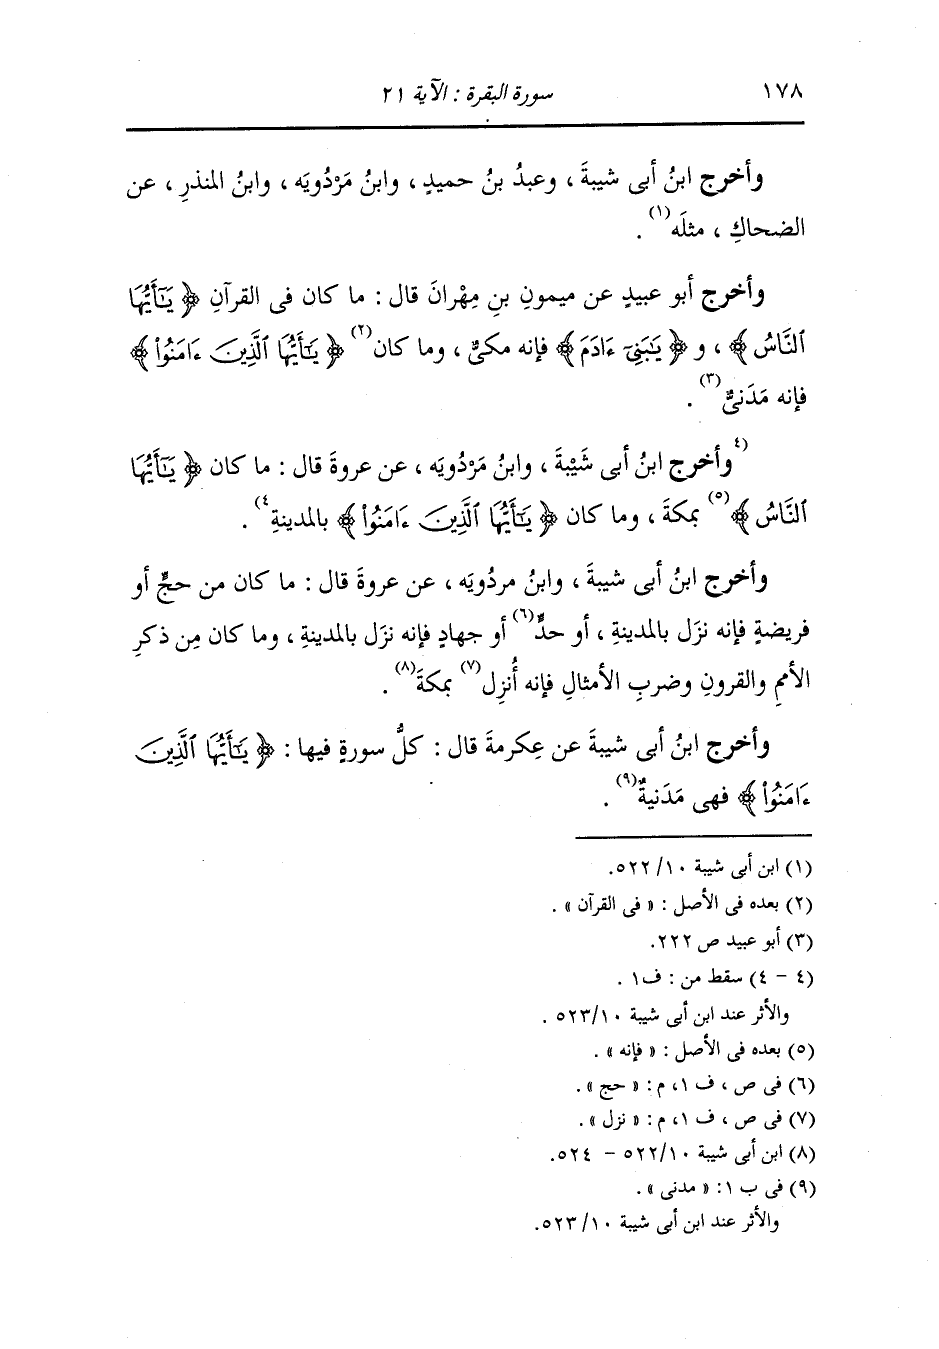 ١٧٨ سورة البقرة : الآية ٢١
وأخرج ابنُ أبى شيبةَ ، وعبدُ بنُ حميدٍ ، وابنُ مَرْدُويَه ، وابنُ المنذرِ ، عن
الضحاكِ ، مثلَه(١) .
وأخرج أبو عبيدٍ عن ميمونِ بنِ مِهْرانَ قال : ما كان فى القرآنِ ﴿ يَٰٓأَيُّهَا
ٱلنَّاسُ ﴾ ، و ﴿ يَٰبَنِىٓ ءَادَمَ ﴾ فإنه مكىٌّ ، وما كان(٢) ﴿ يَٰٓأَيُّهَا ٱلَّذِينَ ءَامَنُوا۟ ﴾
فإنه مَدَنىٌّ(٣) .
(٤وأخرج ابنُ أبى شَيْبةَ ، وابنُ مَرْدُويَه ، عن عروةَ قال : ما كان ﴿ يَٰٓأَيُّهَا
ٱلنَّاسُ ﴾(٥) بمكةَ ، وما كان ﴿ يَٰٓأَيُّهَا ٱلَّذِينَ ءَامَنُوا۟ ﴾ بالمدينةِ٤) .
وأخرج ابنُ أبى شيبةَ ، وابنُ مردُويَه ، عن عروةَ قال : ما كان من حجٍّ أو
فريضةٍ فإنه نزَل بالمدينةِ ، أو حدٍّ(٦) أو جهادٍ فإنه نزَل بالمدينةِ ، وما كان مِن ذكرِ
الأممِ والقرونِ وضربِ الأمثالِ فإنه أُنزِل(٧) بمكةَ(٨) .
وأخرج ابنُ أبى شيبةَ عن عِكرمةَ قال : كلُّ سورةٍ فيها : ﴿ يَٰٓأَيُّهَا ٱلَّذِينَ
ءَامَنُوا۟ ﴾ فهى مَدَنيةٌ(٩) .
(١) ابن أبى شيبة ١٠/ ٥٢٢.
(٢) بعده فى الأصل : « فى القرآن » .
(٣) أبو عبيد ص ٢٢٢.
(٤ - ٤) سقط من : ف١ .
والأثر عند ابن أبى شيبة ١٠/ ٥٢٣ .
(٥) بعده فى الأصل : « فإنه » .
(٦) فى ص ، ف ١، م : « حج » .
(٧) فى ص ، ف ١، م : « نزل » .
(٨) ابن أبى شيبة ١٠/ ٥٢٢ - ٥٢٤.
(٩) فى ب ١ : « مدنى » .
والأثر عند ابن أبى شيبة ١٠/ ٥٢٣.